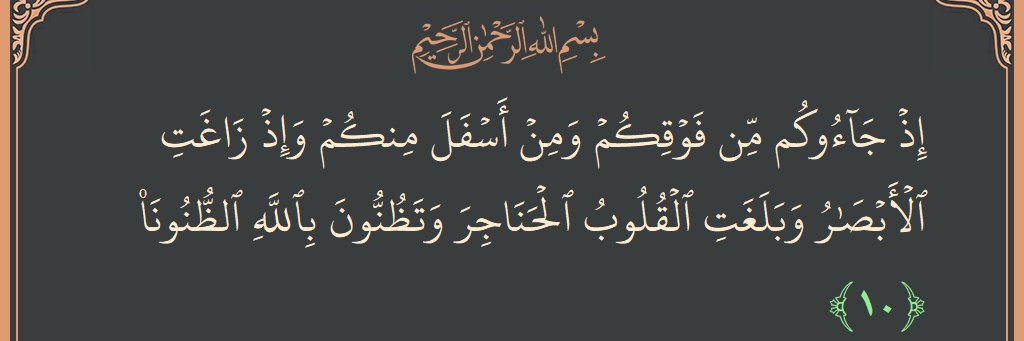 بِسْمِ اللَّهِ الرَّحْمَٰنِ الرَّحِيمِ
إِذۡ جَآءُوكُم مِّن فَوۡقِكُمۡ وَمِنۡ أَسۡفَلَ مِنكُمۡ وَإِذۡ زَاغَتِ
ٱلۡأَبۡصَٰرُ وَبَلَغَتِ ٱلۡقُلُوبُ ٱلۡحَنَاجِرَ وَتَظُنُّونَ بِٱللَّهِ ٱلظُّنُونَا۠
﴿١٠﴾